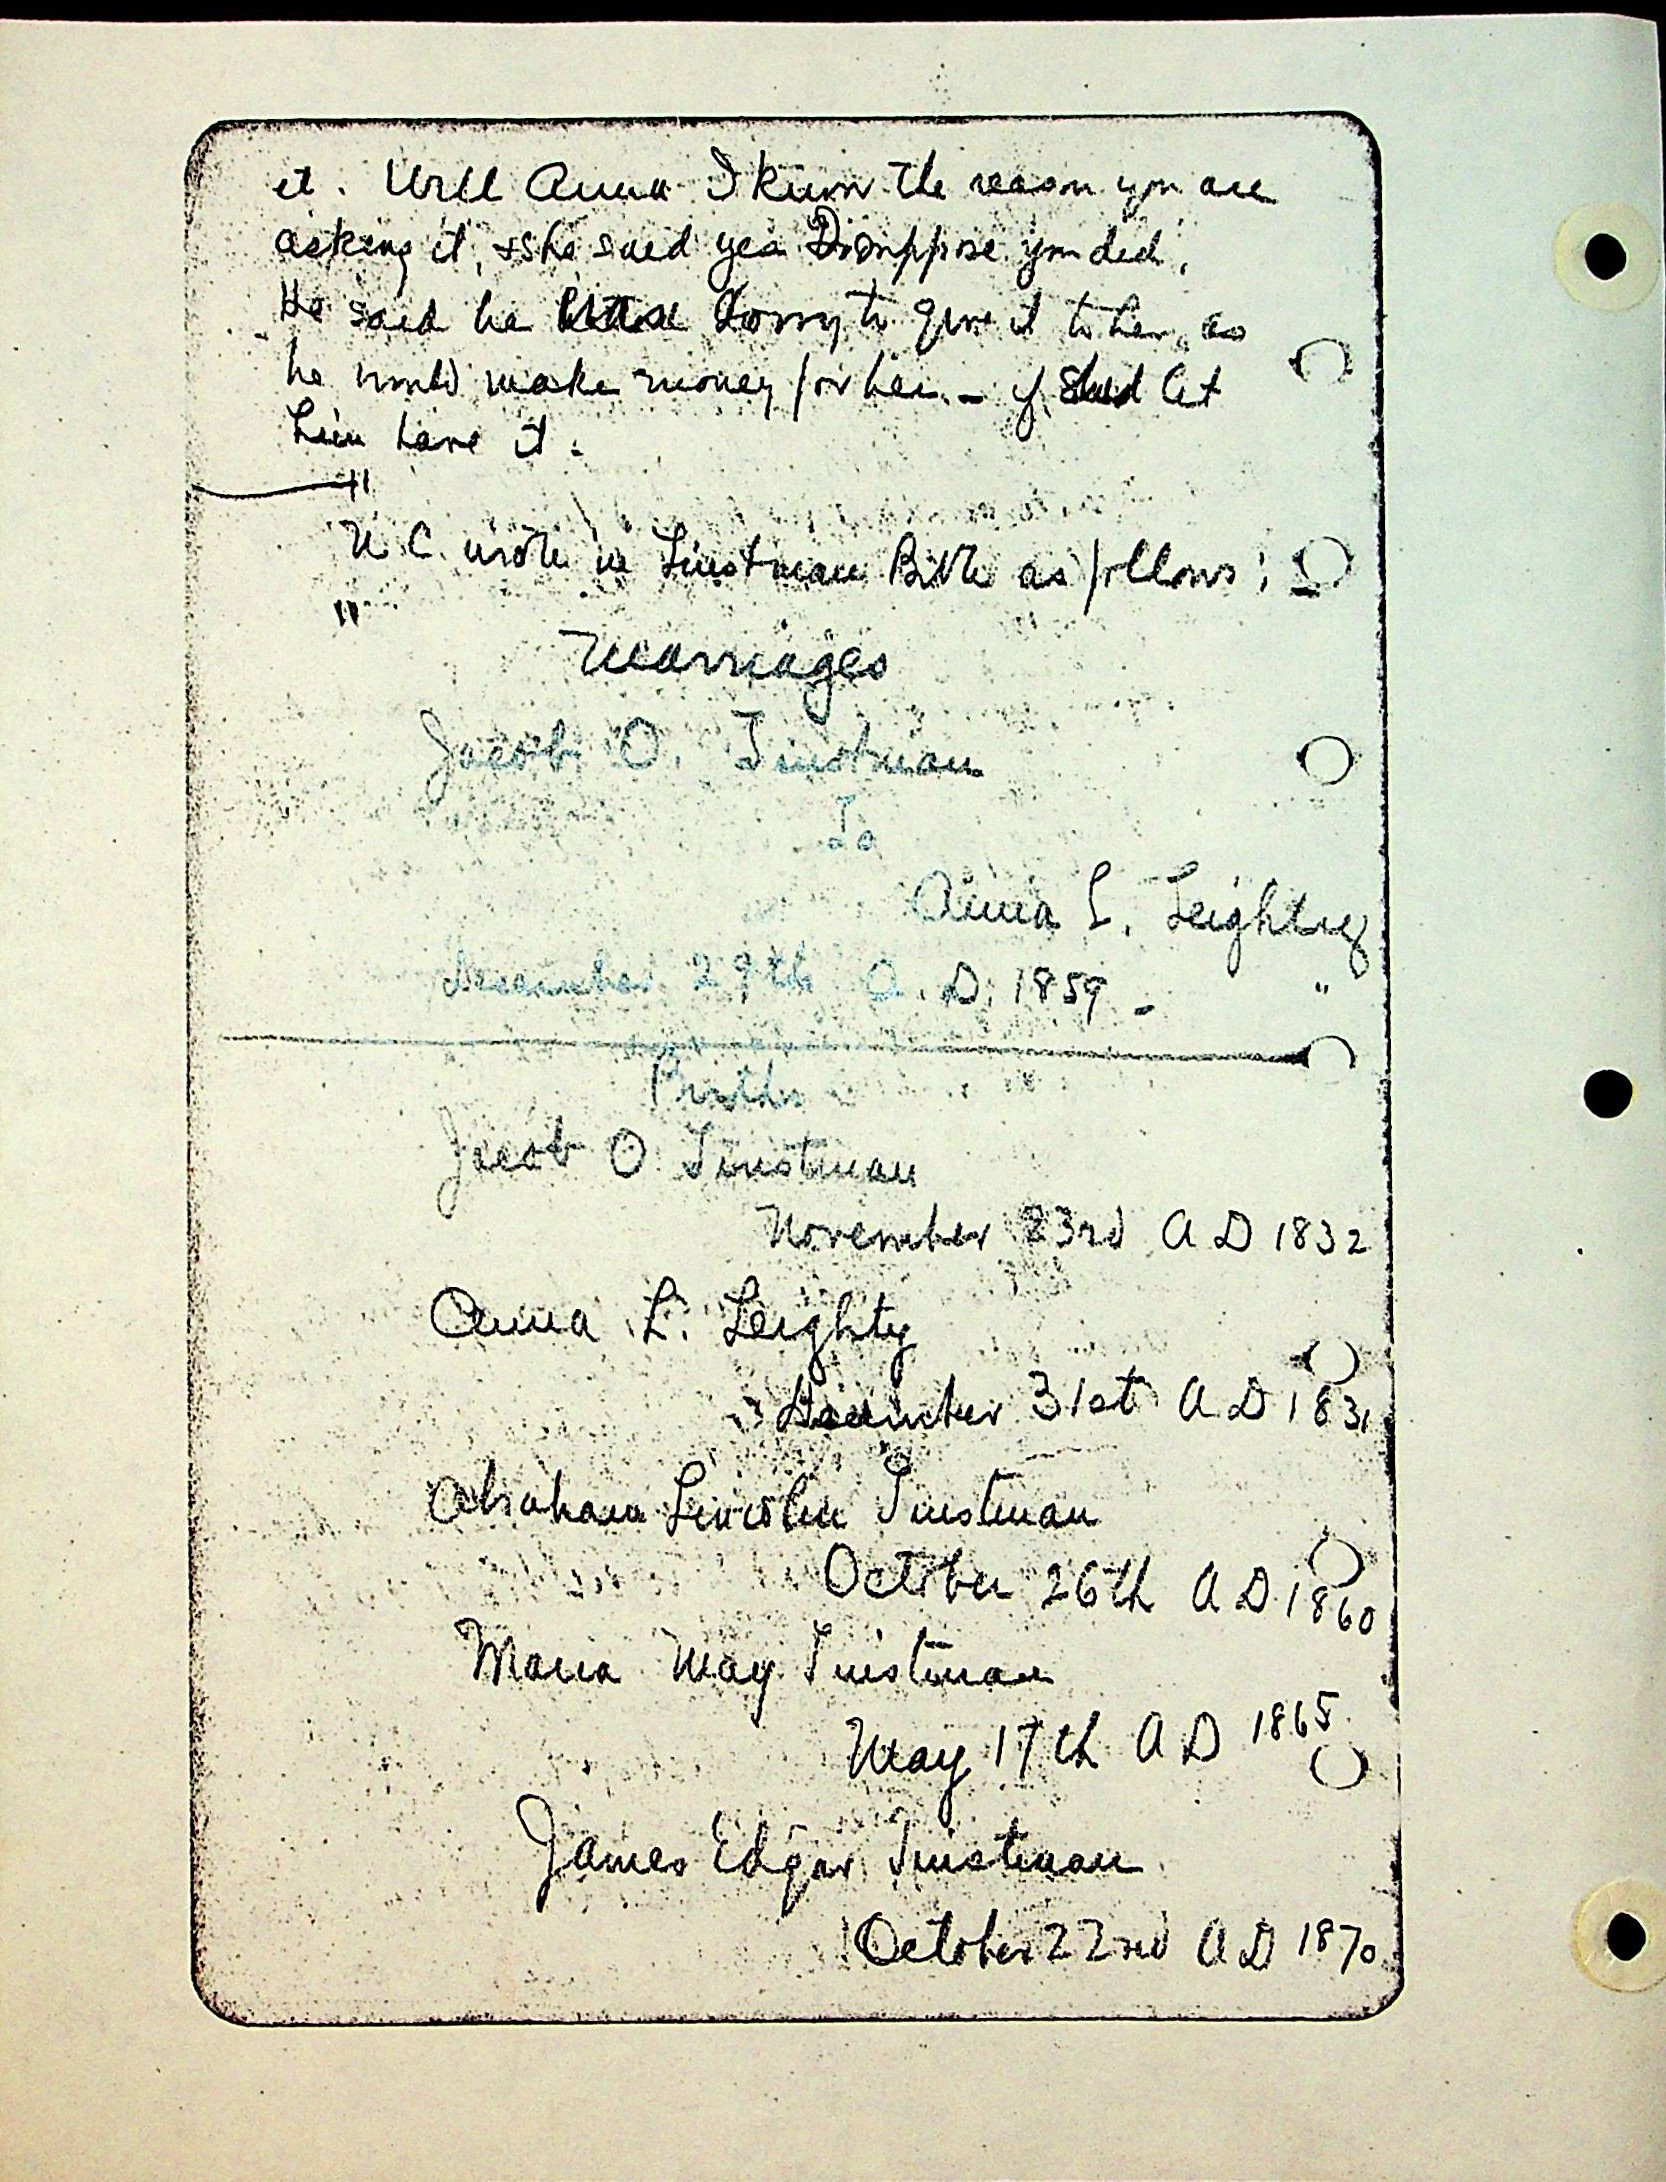 it. Well Anna I know the reason you are
asking it, + she said yea I suppose you did,
He said he was sorry to give it to her, as
he would make money for her - if she'd let
him have it.
"
U. C. wrote in Tinstman Bible as follows;
"
Marriages
Jacob O. Tinstman
To
Anna L. Leighty
December 29th A. D. 1859 - "
Births
Jacob O Tinstman
November 23rd A D 1832
Anna L. Leighty
December 31st A D 1831
Abraham Lincoln Tinstman
October 26th A D 1860
Maria May Tinstman
May 17th A D 1865
James Edgar Tinstman
October 22nd A D 1870